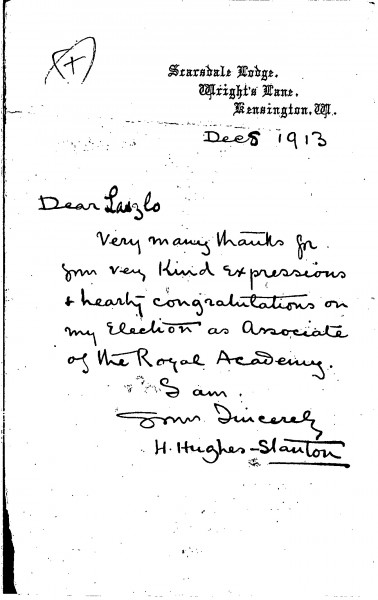 Scarsdale Lodge,
Wright's Lane,
Kensington, W.
Dec 8 1913
Dear Laszlo
Very many thanks for
your very Kind Expressions
& hearty congratulations on
my Election as Associate
of the Royal Academy.
I am.
Yours Sincerely
H. Hughes-Stanton